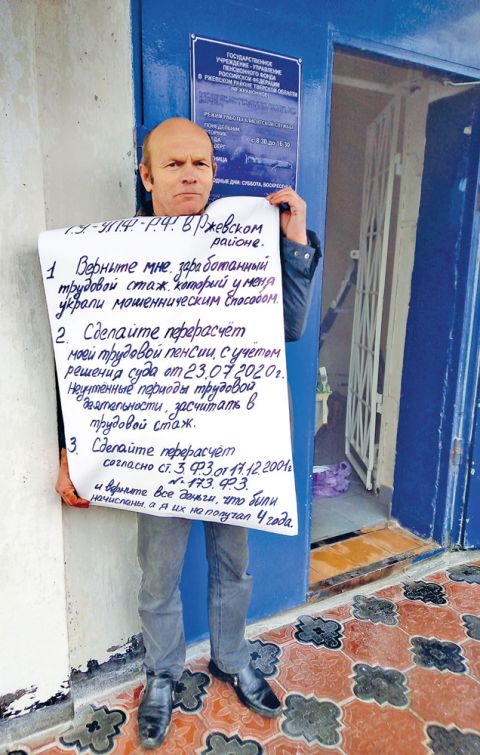 ГОСУДАРСТВЕННОЕ
УЧРЕЖДЕНИЕ - УПРАВЛЕНИЕ
ПЕНСИОННОГО ФОНДА
РОССИЙСКОЙ ФЕДЕРАЦИИ
В РЖЕВСКОМ РАЙОНЕ ТВЕРСКОЙ ОБЛАСТИ
РЕЖИМ РАБОТЫ КЛИЕНТСКОЙ СЛУЖБЫ
ПОНЕДЕЛЬНИК
с 8-30 до 16-30
ДНИ: СУББОТА, ВОСКРЕСЕНЬЕ
Г.У-УПФ-Р.Ф. в Ржевском
районе.
1 Верните мне, заработанный
трудовой стаж, который у меня
украли мошенническим способом.
2. Сделайте перерасчёт
моей трудовой пенсии, с учётом
решения суда от 23.07.2020г.
Неучтённые периоды трудовой
деятельности, засчитать в
трудовой стаж.
3. Сделайте перерасчёт
согласно ст. 3 ФЗ от 17.12.2001г
№-173. Ф.З.
и верните все деньги, что были
начислены, а я их не получал 4 года.